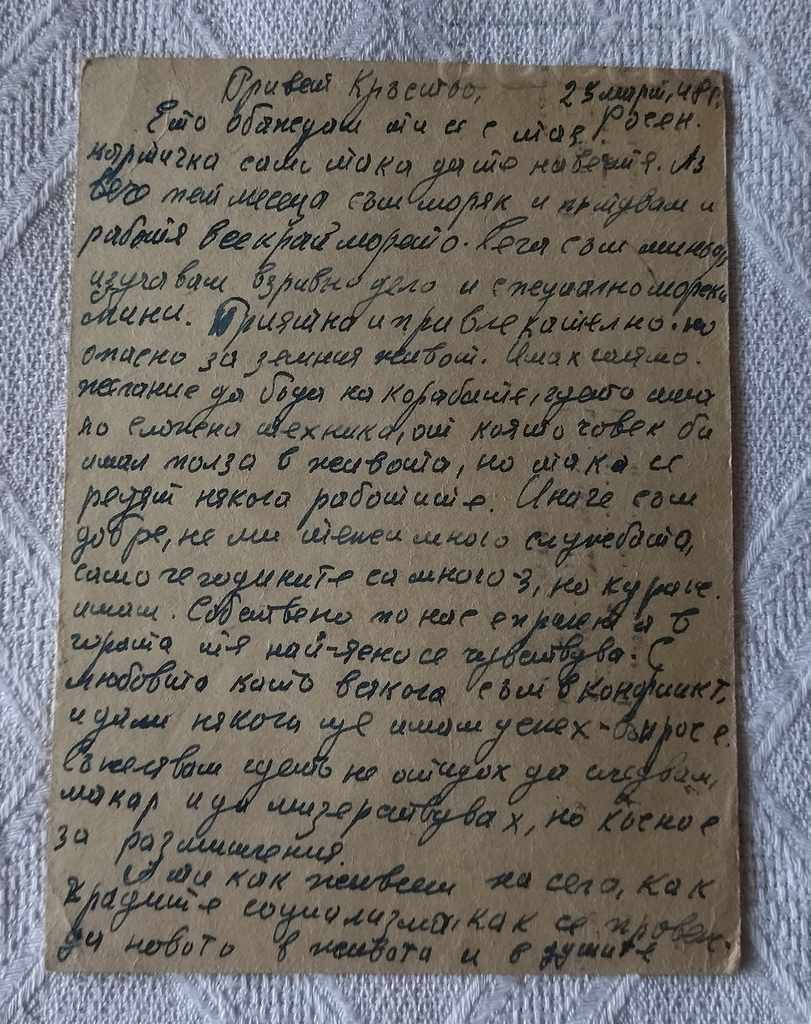 Привет Кръстьо, 23 март, 48 г.
Ето обаждам ти се с тая Росен.
картичка само така да те навестя. Аз
вече пет месеца съм моряк и пътувам и
работя все край морето. Сега съм миньор,
изучавам взривно дело и специално морски
мини. Приятно и привлекателно, но
опасно за земния живот. Имах голямо
желание да бъда на корабите, гдето има
по сложена техника, от която човек би
имал полза в живота, но така се
редят някога работите. Иначе съм
добре, не ми тежи много службата,
само че годините са много-3, но кураж
имам. Собствено по нас е пролет и в
гората тя най-ясно се чувствува. С
любовта както всякога съм в конфликт,
и дали някога ще имам успех - въпрос е.
Съжелявам гдето не отидох да следвам,
макар и да мизерствувах, но късно е
за размишления.
А ти как живееш на села, как
градите социализма, как се провеж-
да новото в живота и в душите